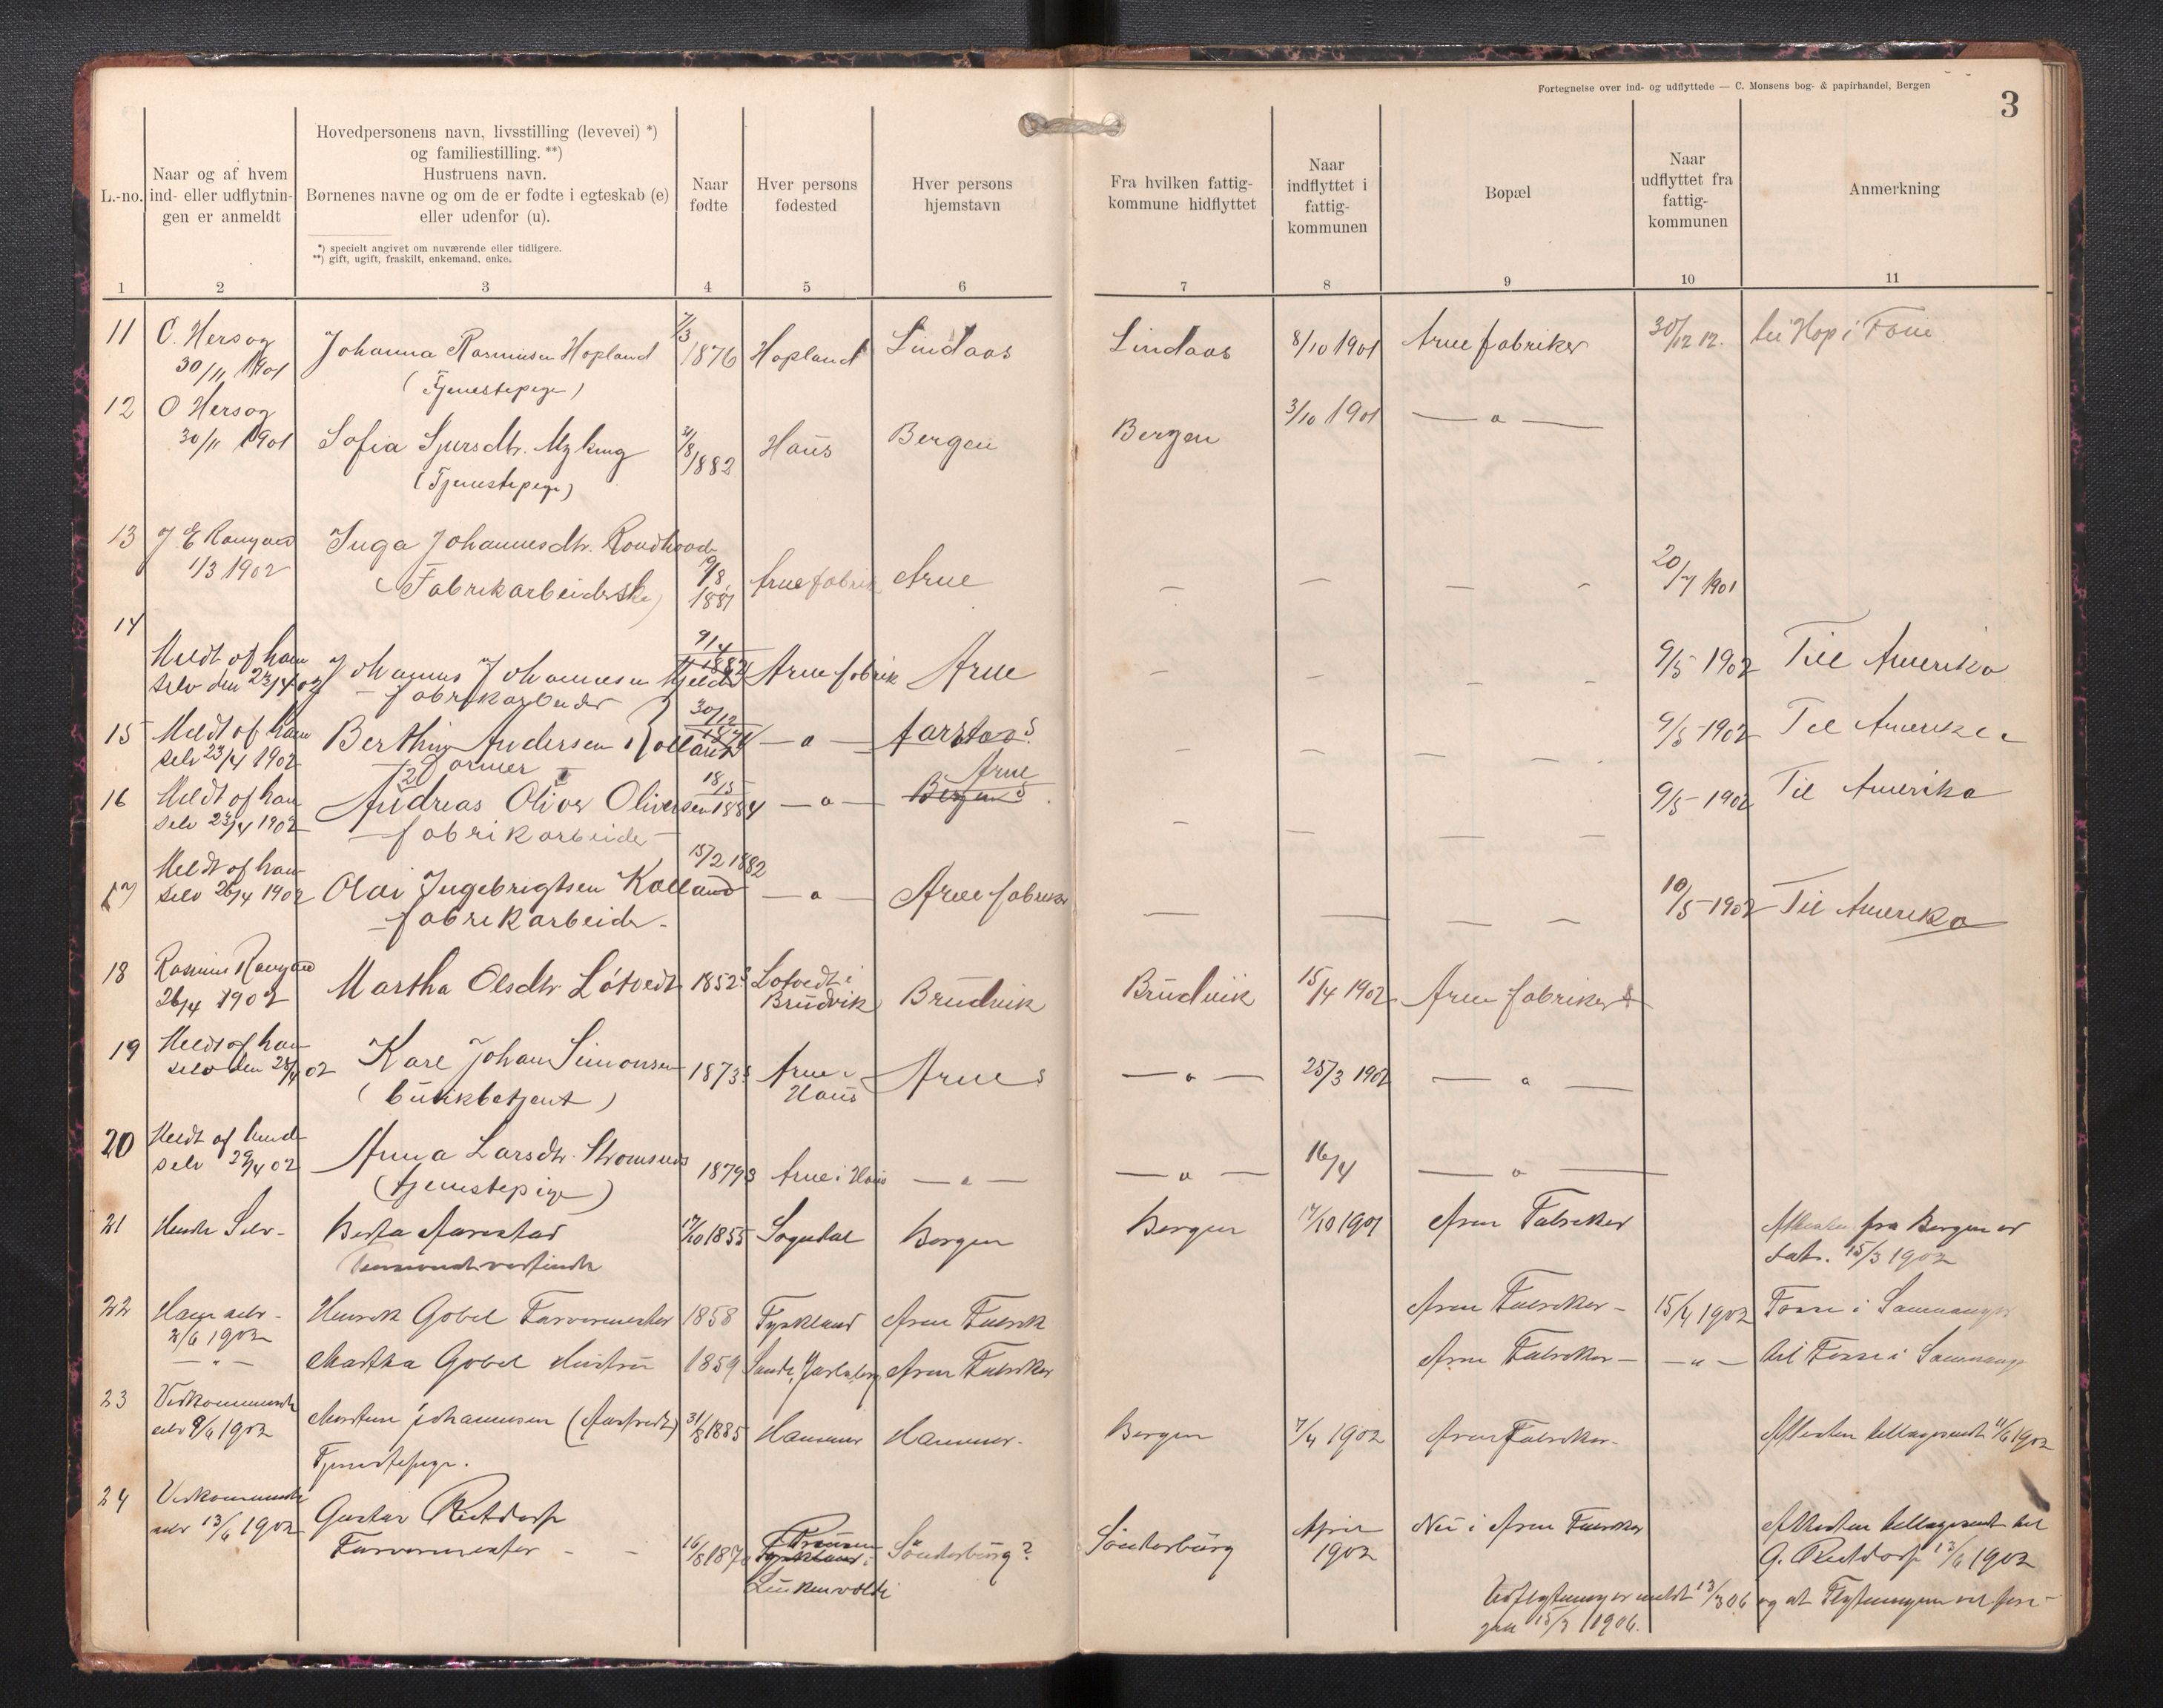 Fortegnelse over ind- og udflyttede — C. Monsens bog- & papirhandel, Bergen
3
L.-no.
Naar og af hvem
ind- eller udflytnin-
gen er anmeldt
Hovedpersonens navn, livsstilling (levevei) *)
og familiestilling. **)
Hustruens navn.
Børnenes navne og om de er fødte i egteskab (e)
eller udenfor (u).
*) specielt angivet om nuværende eller tidligere.
**) gift, ugift, fraskilt, enkemand, enke.
Naar
fødte
Hver persons
fødested
Hver persons
hjemstavn
Fra hvilken fattig-
kommune hidflyttet
Naar
indflyttet i
fattig-
kommunen
Bopæl
Naar
udflyttet fra
fattig-
kommunen
Anmerkning
1 2 3 4 5 6 7 8 9 10 11
11 O. Hersog 7/3
30/11 1901 Johanna Rasmusen Hopland 1876 Hopland Lindaas Lindaas 8/10 1901 Arne fabriker 30/12 12. til Hop i Fane
(Tjenestepige)
12 O Hersog 3/10 1901 — " —
30/11 1901 Sofia Sjursdtr. Myking /8 1882 Haus Bergen Bergen
(Tjenestepige)
13 J E Rangaas Inga Johannesdtr.
1/3 1902 (Fabrikarbeiderske) 19/8 1881 Arne fabrik Arne — — — — 20/7 1901
14 Meldt af ham 9/4
selv den 23/4 02 Johannes Johannesen 1882 Arne fabrik Arne — — — 9/5 1902 Til Amerika
— fabrikarbeider
15 Meldt af ham 30/12
selv 23/4 1902 Berthin Andersen Holland — " — Aarstad — — — 9/5 1902 Til Amerika
Former
16 Meldt af ham 18/5 Arne
selv 23/4 1902 Andreas Oliver Oliversen 1884 — " — Bergen — — — — 9/5 1902 Til Amerika
— fabrikarbeider —
17 Meldt af ham 15/2 1882
selv 26/4 1902 Olai Ingebrigtsen Kalland — " — Arne fabriker — — — — 10/5 1902 Til Amerika
— fabrikarbeider —
18 Rasmus Rangaas
26/4 1902 Martha Olsdtr Løtvedt 1852 Løtvedt i Brudvik Brudvik Brudvik 15/4 1902 Arne fabriker
19 Meldt af ham
selv den 28/4 02 Karl Johan Simonsen 1873 Arne i Haus Arne — " — 25/3 1902 — " —
(butikbetjent)
20 Meldt af hende
selv 29/4 02 Anna Larsdtr. 1879 Arne i Haus — " — — " — 16/4 — " —
(tjenestepige)
21 Hende Selv - Berta Aarestad 17/10 1855 Sogndal Bergen Bergen 17/10 1901 Arne Fabriker Attesten fra Bergen er
dat. 15/3 1902
22 Ham selv - Henrik Gobel Farvermester 1858 Tyskland Arne Fabrik Arne Fabriker - 15/4 1902 Fosse i Samnanger
2/6 1902
— " — Martha Gobel Hustru 1859 Sande, Jarlsberg Arne Fabriker Arne Fabriker - — " — til Fosse i Samnanger
23 Vedkommende
selv 9/6 1902 Johannesen 31/8 1885 Hammer Hammer. Bergen 7/4 1902 Arne Fabriker - Attesten tilbagesendt 11/6 1902
Tjenestepige.
24 Vedkommende
selv 13/6 1902 Gustav Rietdorf
Farvermester - - 16/8 1870 Preussen Sönderburg? Sönderburg April 1902 Nu i Arne Fabriker Attesten tilbagesendt til
Tyskland G. Rietdorf 13/6 1902
Lukenvalde
Udflytning er meldt 13/3 06 og at Flytningen vil fore-
gaa 15/3 1906.